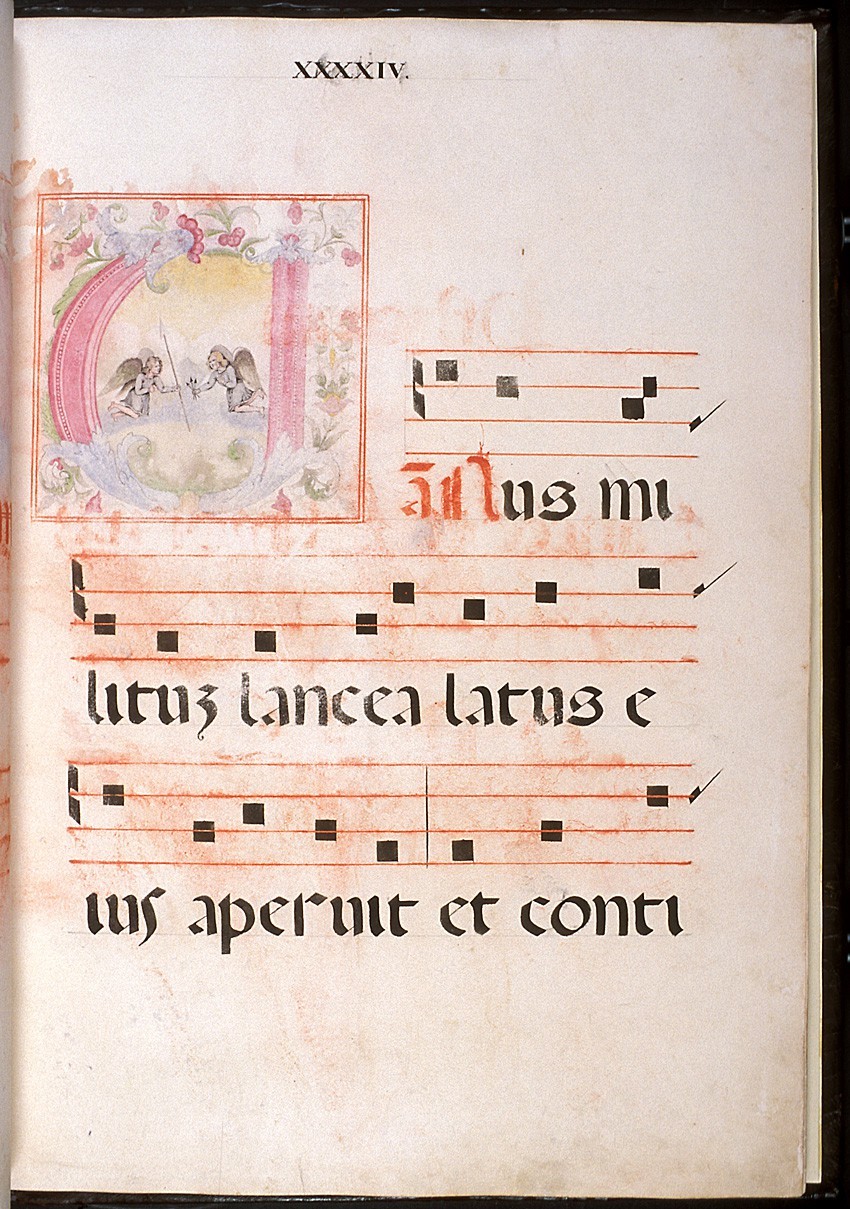 XXXXIV.
Unus mi
lituz lancea latus e
ius aperuit et conti